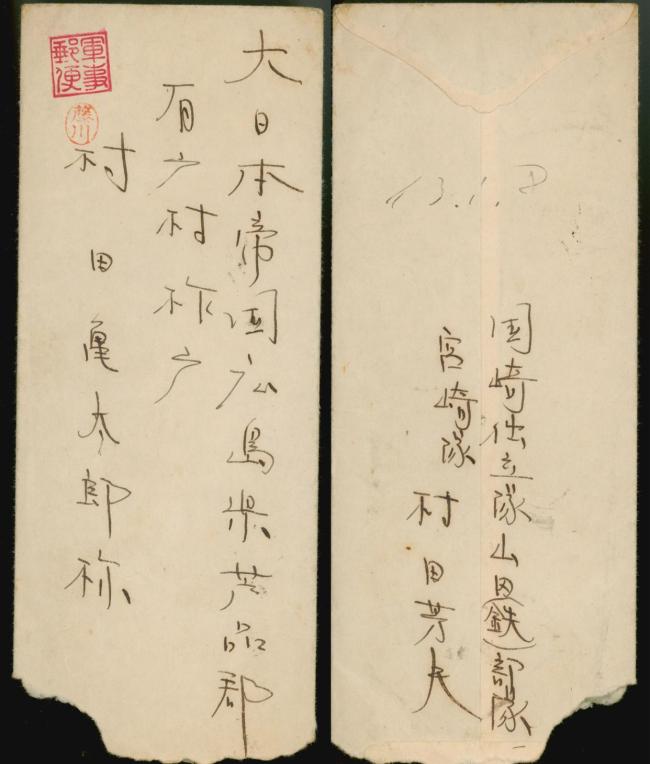 大日本帝国広島県芦品郡
有广村柞广
軍事
郵便
藤川
村田亀太郎様
13.1.8
国崎独立隊山田(鉄)部隊
宮崎隊
村田芳夫